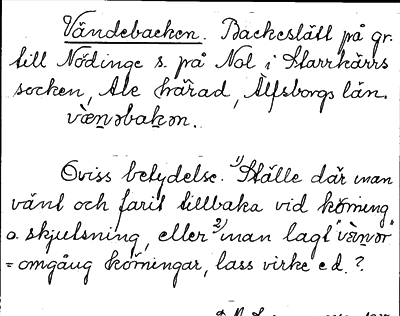 Vändebacken. Backeslätt på gr.
till Nödinge s. på Nol i Starrkärrs
socken, Ale härad, Älfsborgs län.
væ̀n̥əbak̥ən.
Oviss betydelse. 1) Ställe där man
vänt och farit tillbaka vid körning
o. skjutsning, eller 2) man lagt "væ̀nər"
= omgång körningar, lass virke e.d.?